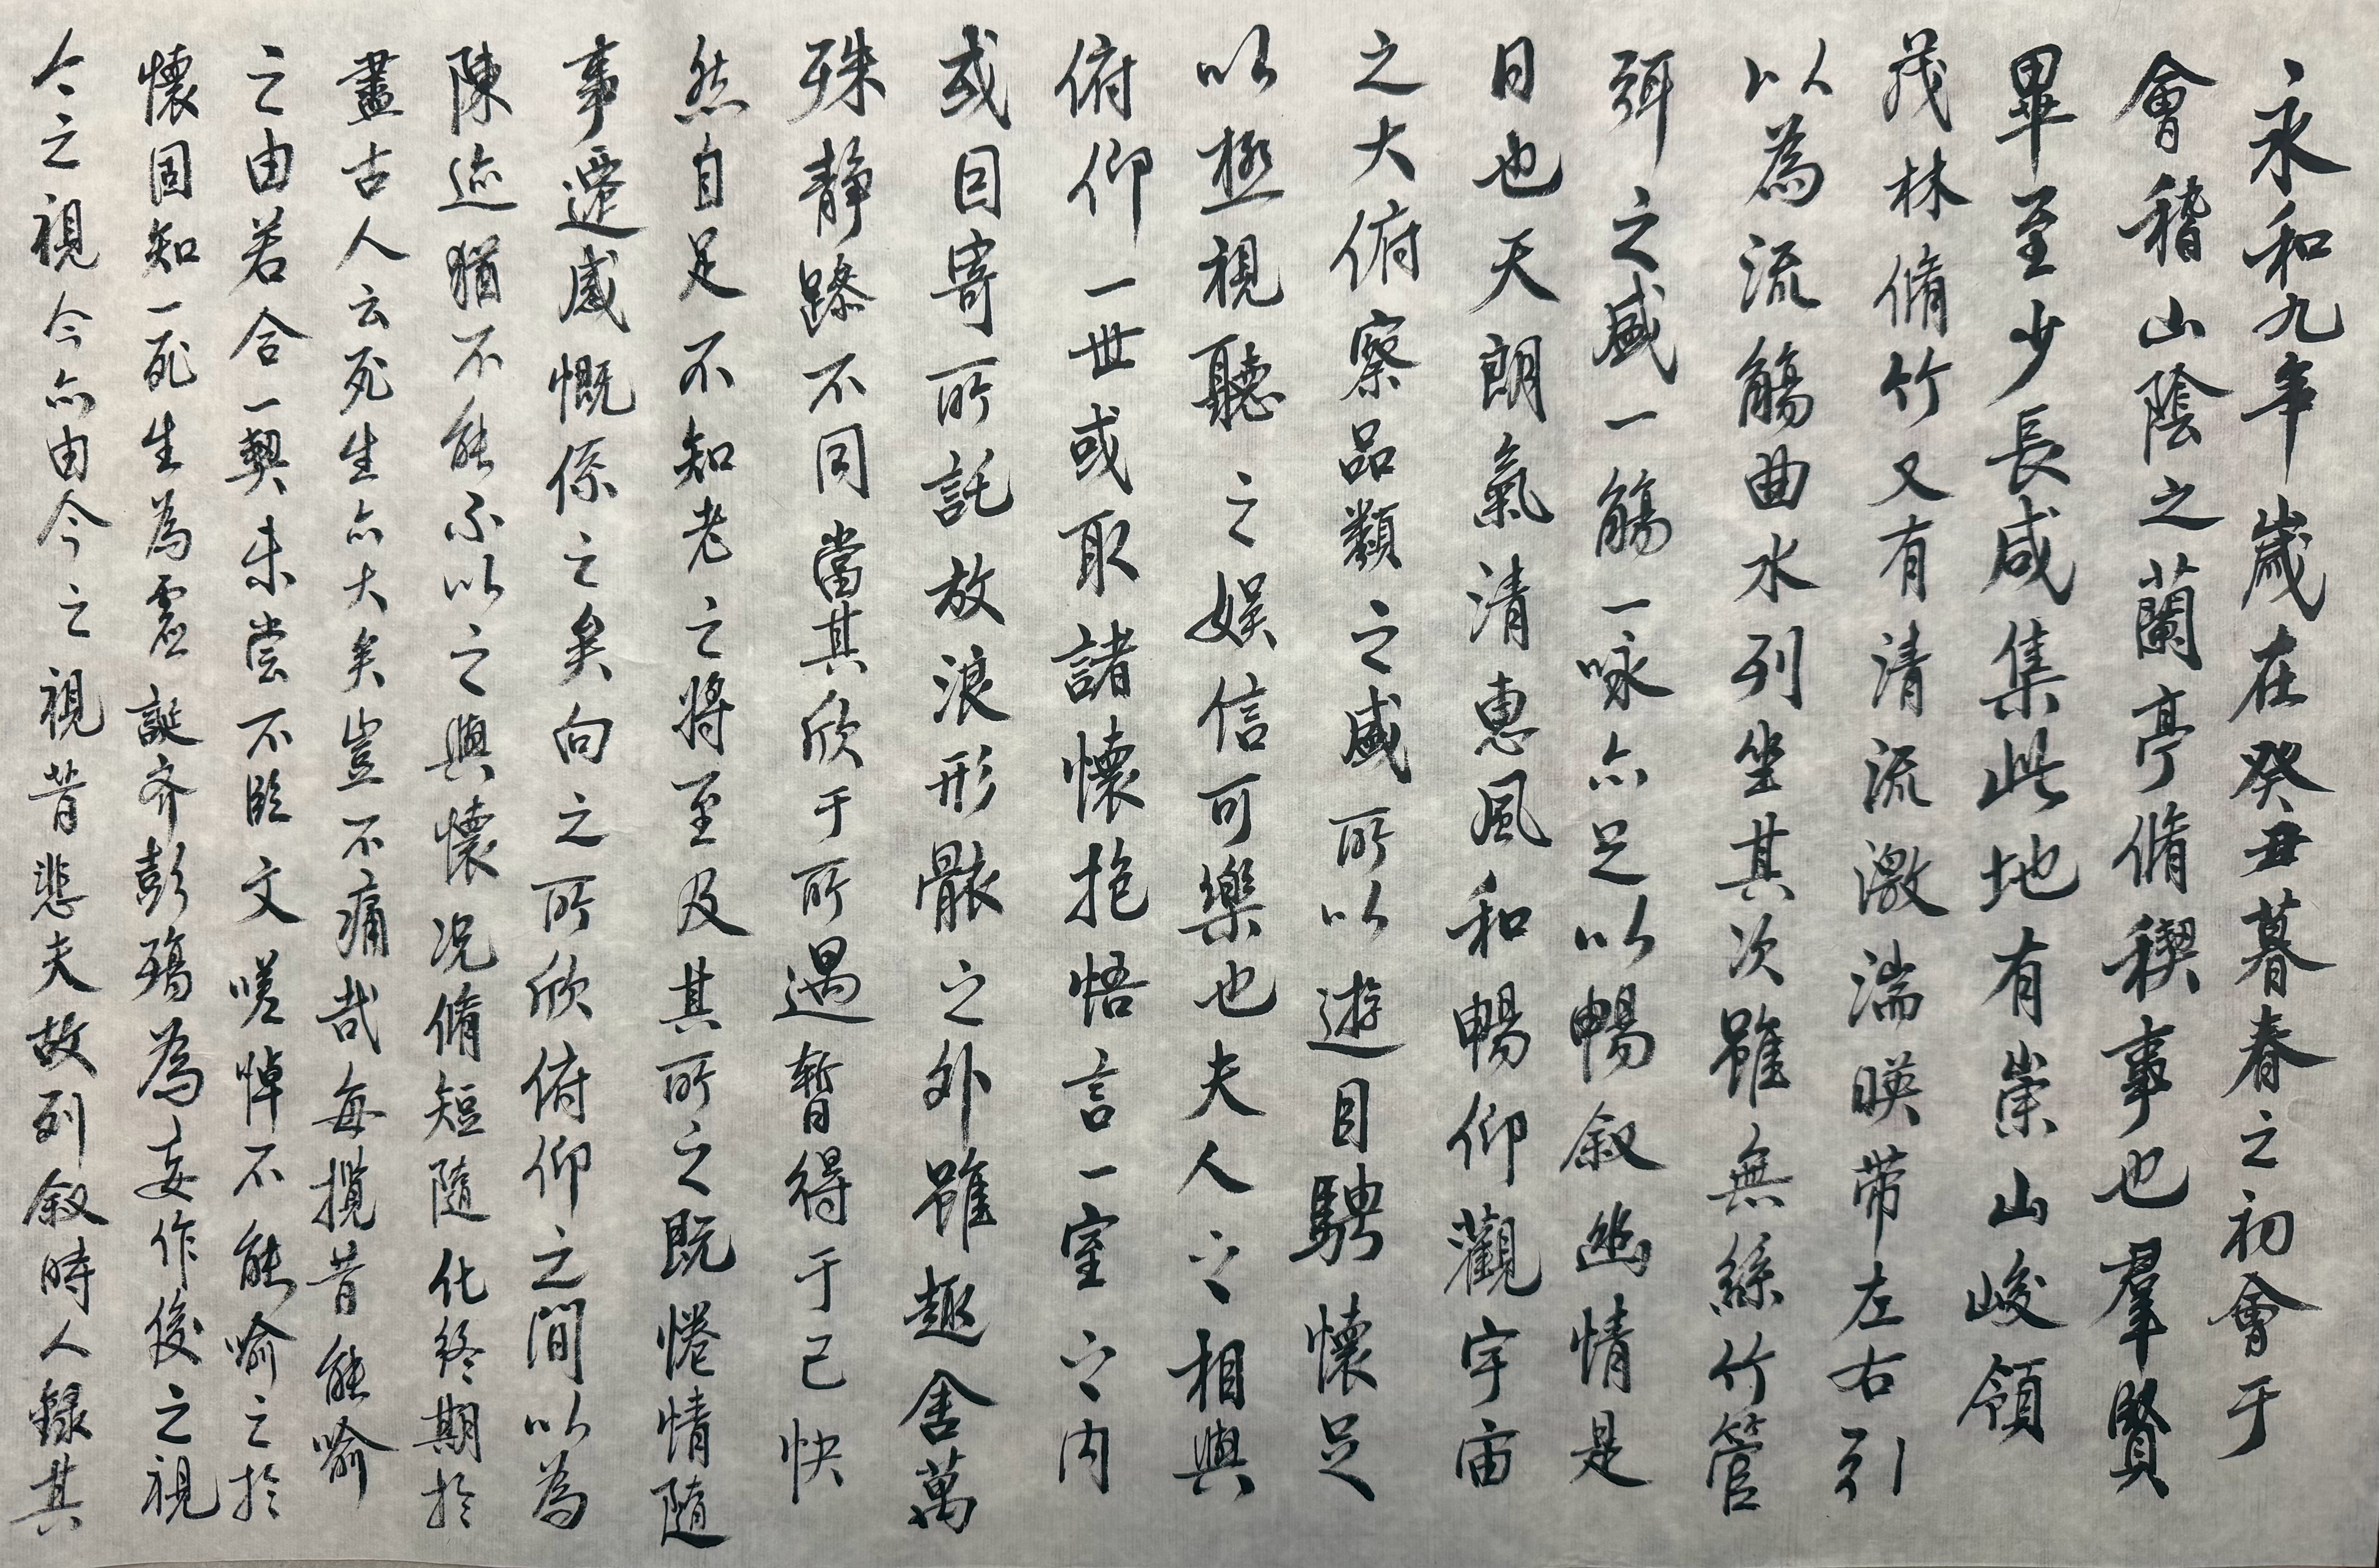 永和九年歲在癸丑暮春之初會于
會稽山陰之蘭亭脩稧事也羣賢
畢至少長咸集此地有崇山峻領
茂林脩竹又有清流激湍暎带左右引
以為流觴曲水列坐其次雖無絲竹管
弦之盛一觴一咏亦足以暢叙幽情是
日也天朗氣清惠風和暢仰觀宇宙
之大俯察品類之盛所以遊目騁懷足
以極視聽之娱信可樂也夫人之相與
俯仰一世或取諸懷抱悟言一室之内
或因寄所託放浪形骸之外雖趣舍萬
殊静躁不同當其欣于所遇暫得于己快
然自足不知老之將至及其所之既惓情隨
事遷感慨係之矣向之所欣俯仰之間以為
陳迹猶不能不以之興懷况脩短隨化終期於
盡古人云死生亦大矣豈不痛哉每攬昔能喻
之由若合一契未嘗不臨文嗟悼不能喻之於
懷固知一死生為虚誕齊彭殤為妄作後之視
今之視今亦由今之視昔悲夫故列叙時人録其